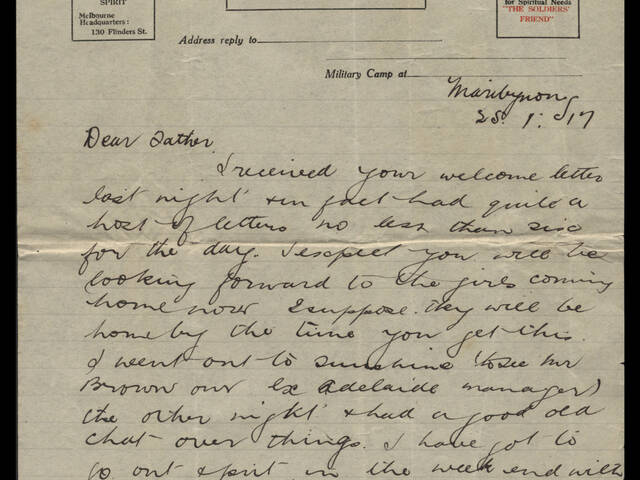 SPIRIT
Melbourne
Headquarters:
130 Flinders St.
for Spiritual Needs
"THE SOLDIERS'
FRIEND"
Address reply to
Military Camp at Maribyrnong
25. 1. 17
Dear Father
I received your welcome letter
last night & in fact had quite a
host of letters no less than six
for the day. I expect you will be
looking forward to the girls coming
home now I suppose they will be
home by the time you get this.
I went out to Sunshine (to see Mr
Brown our Ex Adelaide manager)
the other night & had a good old
chat over things. I have got to
go out & put in the week end with